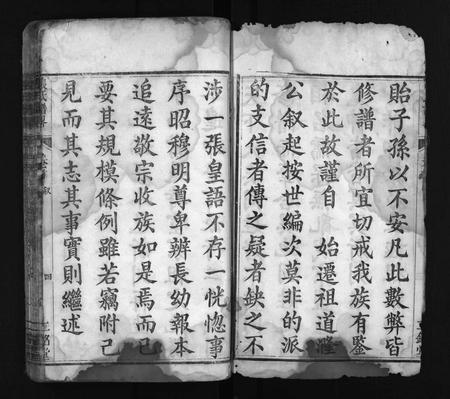 貽子孫以不安凡此數弊皆
修譜者所宜切戒我族有鑒
於此故謹自 始遷祖道隆
公叙起按世編次莫非的派
的支信者傳之疑者缺之不
涉一張皇語不存一恍惚事
序昭穆明尊卑辨長幼報本
追遠敬宗收族如是焉而已
要其規模條例雖若竊附己
見而其志其事實則繼述